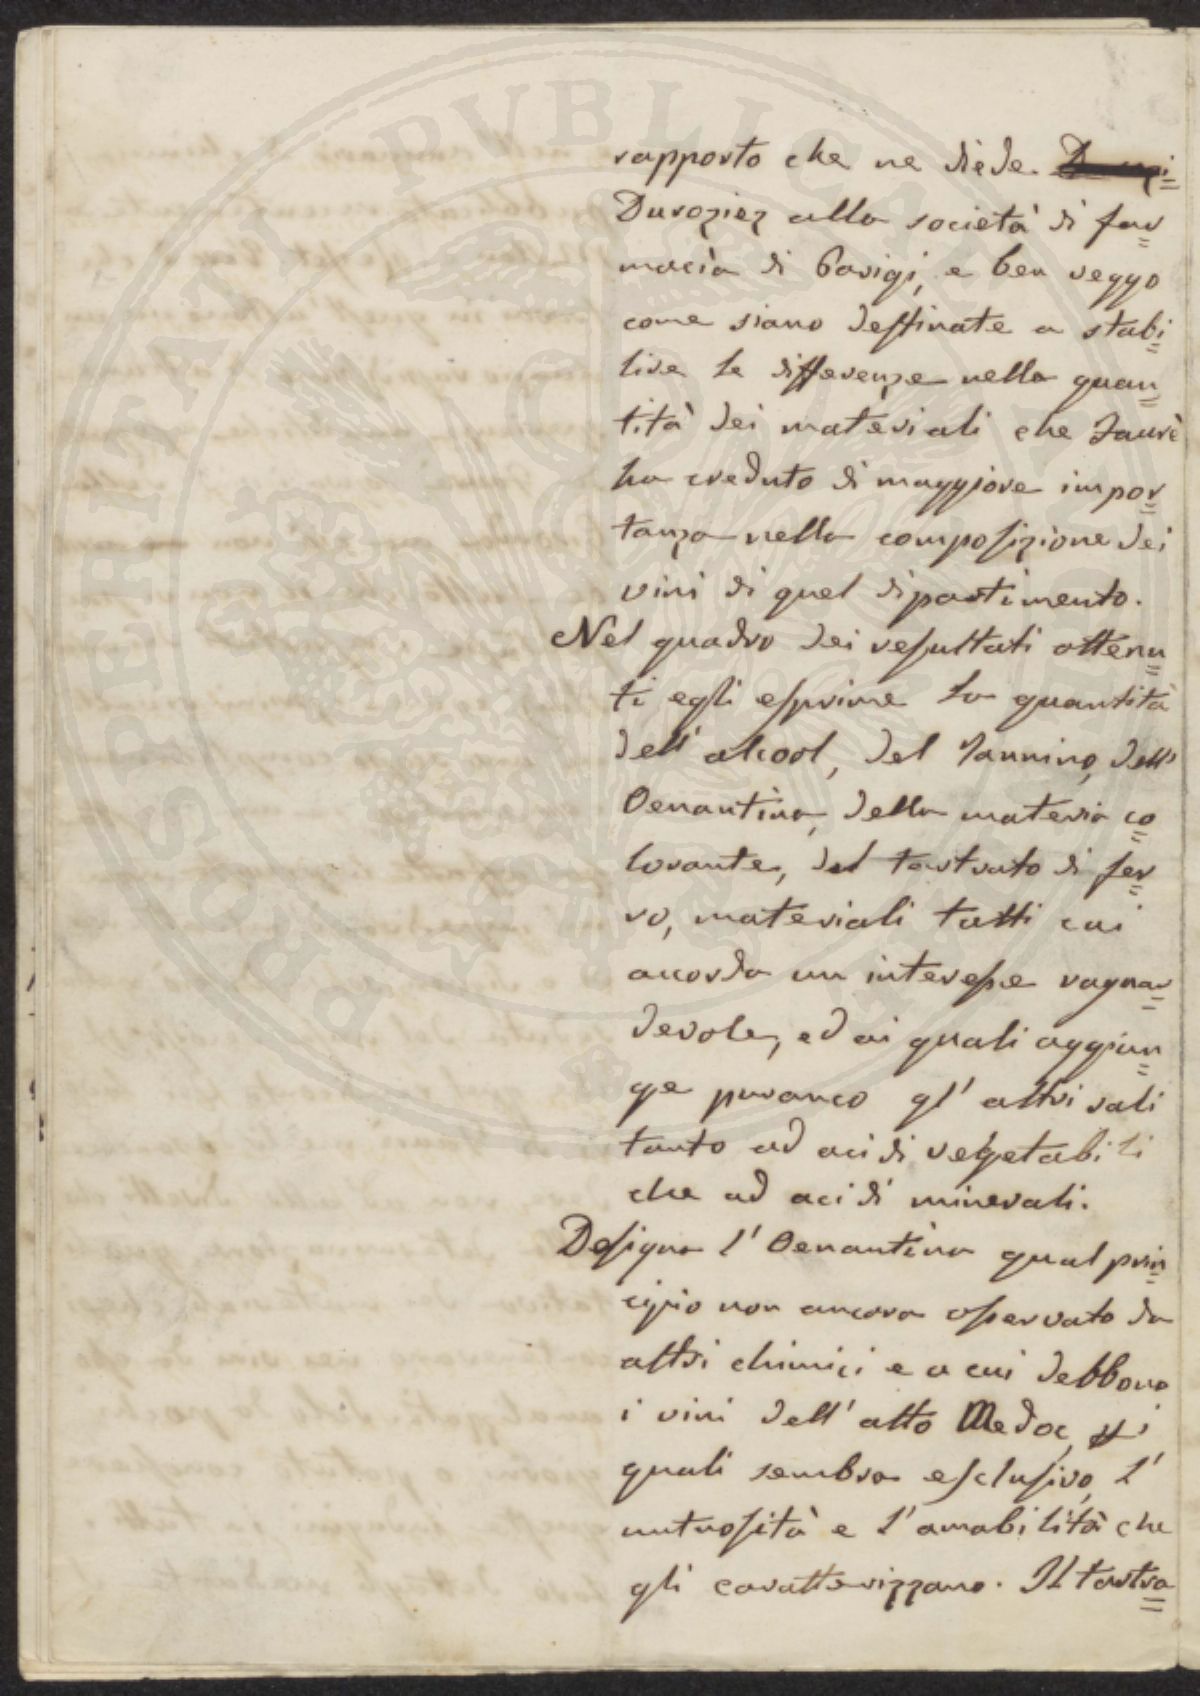 rapporto che ne diede
Duroziez alla società di far=
macia di Parigi, e ben veggo
come siano destinate a stabi=
lire le differenze nella quan=
tità dei materiali che Faurè
ha creduto di maggiore impor=
tanza nella composizione dei
vini di quel dipartimento.
Nel quadro dei resultati ottenu=
ti egli esprime la quantità
dell' alcool, del Tannino, dell'
Oenantina, della materia co=
lorante, del tartrato di fer=
ro, materiali tutti cui
accorda un interesse ragua=
devole, ed ai quali aggiun=
ge puranco gl' altri sali
tanto ad acidi vegetabili
che ad acidi minerali.
Designa l' Oenantina qual prin=
cipio non ancora osservato da
altri chimici e a cui debbono
i vini dell' alto Medoc, ai
quali sembra esclusivo, l'
untuosità e l' amabilità che
gli caratterizzano. Il tartra=
PROSPERITATI PVBLICAE